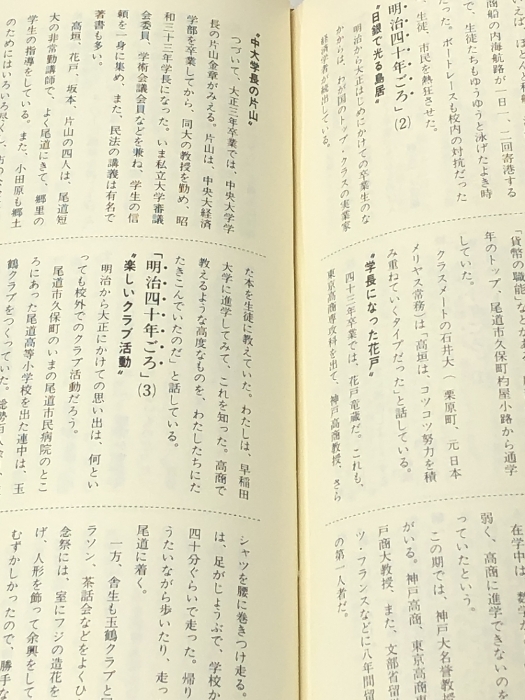 商船の内海航路が一日、二回寄港する
で、生徒たちもゆうゆうと泳げたよき時
だった。ボートレースも校内の対抗だった
、生徒、市民を熱狂させた。
「明治四十年ごろ」(2)
〝日銀で光る島居〟
明治から大正はじめにかけての卒業生のな
かからは、わが国のトップ・クラスの実業家
経済学者が続出している。
「貨幣の職能」などがあ
年のトップ、尾道市久保町杓屋小路から通学
していた。
クラスメートの石井大一（栗原町、元日本
メリヤス常務）は「高垣は、コツコツ努力を積
み重ねていくタイプだった」と話している。
〝学長になった花戸〟
四十三年卒業では、花戸竜蔵だ。これも、
東京高商専攻科を出て、神戸高商教授、さら
在学中は、数学が
弱く、高商に進学できない
っていたという。
この期では、神戸大名誉教授
がいる。神戸高商、東京高商専
戸商大教授、また、文部省留
ツ・フランスなどに八年間留
の第一人者だ。
〝中大学長の片山〟
つづいて、大正三年卒業では、中央大学学
長の片山金章がみえる。片山は、中央大経済
学部を卒業してから、同大の教授を勤め、昭
和三十三年学長になった。いま私立大学審議
会委員、学術会議会員などを兼ね、学生の信
頼を一身に集め、また、民法の講義は有名で
著書も多い。
高垣、花戸、坂本、片山の四人は、尾道短
大の非常勤講師で、よく尾道にきて、郷里の
学生の指導をしている。また、小田原も郷土
のためにはいろいろ
た本を生徒に教えていた。わたしは、早稲田
大学に進学してみて、これを知った。高商で
教えるような高度なものを、わたしたちにた
たきこんでいたのだ」と話している。
「明治四十年ごろ」(3)
〝楽しいクラブ活動〟
明治から大正にかけての思い出は、何とい
っても校外でのクラブ活動だろう。
尾道市久保町のいまの尾道市民病院のとこ
ろにあった尾道高等小学校を出た連中は、玉
鶴クラブをつくっていた。
シャツを腰に巻きつけ走る。
は、足がじょうぶで、学校か
四十分ぐらいで走った。帰り
うたいながら歩いたり、走っ
尾道に着く。
一方、舎生も玉鶴クラブと
ラソン、茶話会などをよくひ
念祭には、室にフジの造花を
げ、人形を飾って余興をして
むずかしかったので、勝手な